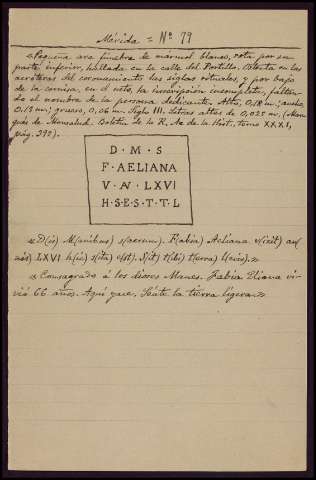 Mérida = Nº 79
«Pequeña ara fúnebre de mármol blanco, rota por su
parte inferior, hallada en la calle del Portillo. Ostenta en las
acróteras del coronamiento las siglas rituales, y por bajo
de la cornisa, en el neto, la inscripción incompleta, faltan-
do el nombre de la persona dedicante. Alto, 0,18 m; ancho,
0,13 m; grueso, 0,06 m. Siglo III. Letras altas de 0,025 m. (Mar-
qués de Monsalud. Boletín de la R. Ac de la Hist. tomo XXXI,
pág. 392).
D · M · S
F · AELIANA
V · AN · LXVI
H · S · E · S · T · T · L
«D(is) M(anibus) s(acrum). F(abia) Aeliana v(ixit) an(
nis) LXVI h(ic) s(ita) e(st). S(it) t(ibi) t(erra) l(evis).»
«Consagrado á los dioses Manes. Fabia Eliana vi-
vió 66 años. Aquí yace. Séate la tierra ligera.»